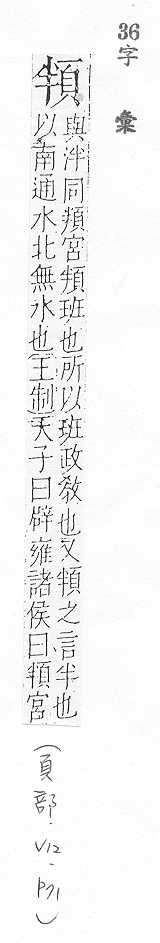 36
字
彙
頖
與泮同頖宮頖班也所以班政敎也又頖之言半也
以南通水北無水也(王制)天子曰辟雍諸侯曰頖宮
(頁部-V12-P71)